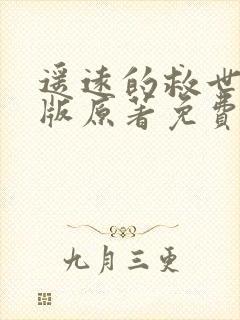 遥远的救世
版原著免費
九月三更